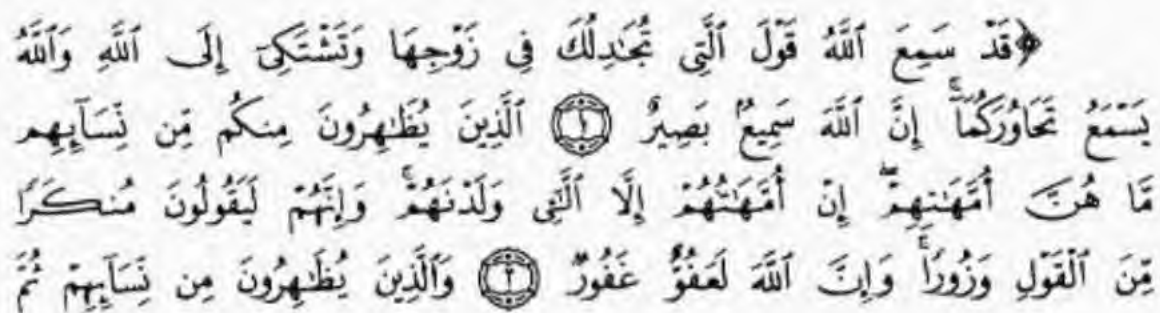 ﴿قَدۡ سَمِعَ ٱللَّهُ قَوۡلَ ٱلَّتِي تُجَٰدِلُكَ فِي زَوۡجِهَا وَتَشۡتَكِيٓ إِلَى ٱللَّهِ وَٱللَّهُ
يَسۡمَعُ تَحَاوُرَكُمَآۚ إِنَّ ٱللَّهَ سَمِيعُۢ بَصِيرٌ ١ ٱلَّذِينَ يُظَٰهِرُونَ مِنكُم مِّن نِّسَآئِهِم
مَّا هُنَّ أُمَّهَٰتِهِمۡۖ إِنۡ أُمَّهَٰتُهُمۡ إِلَّا ٱلَّٰٓـِٔي وَلَدۡنَهُمۡۚ وَإِنَّهُمۡ لَيَقُولُونَ مُنكَرٗا
مِّنَ ٱلۡقَوۡلِ وَزُورٗاۚ وَإِنَّ ٱللَّهَ لَعَفُوٌّ غَفُورٞ ٢ وَٱلَّذِينَ يُظَٰهِرُونَ مِن نِّسَآئِهِمۡ ثُمَّ